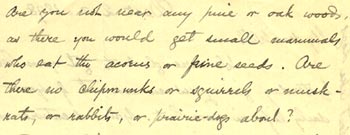 Are you not near any pine or oak woods,
as there you would get small mammals
who eat the acorns or pine seeds. Are
there no chipmunks or squirrels or musk-
rats, or rabbits, or prairie-dogs about?